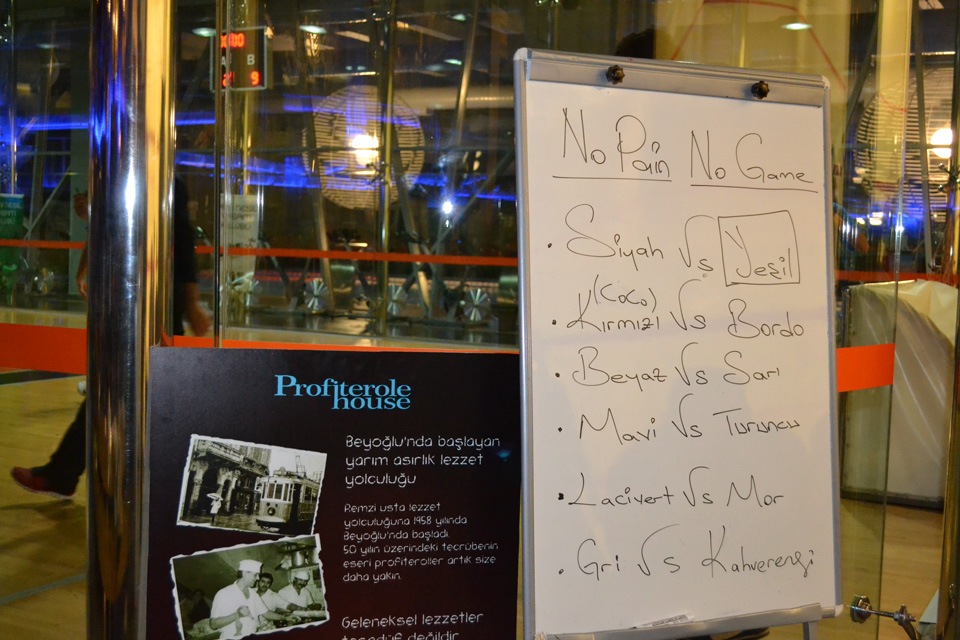 No Pain No Game
· Siyah Vs Yeşil
(CoCo)
· Kırmızı Vs Bordo
· Beyaz Vs Sarı
· Mavi Vs Turuncu
· Lacivert Vs Mor
· Gri Vs Kahverengi
Profiterole
house
Beyoğlu'nda başlayan
yarım asırlık lezzet
yolculuğu
Remzi usta lezzet
yolculuğuna 1958 yılında
Beyoğlu'nda başladı.
50 yılın üzerindeki tecrübenin
eseri profiteroller artık size
daha yakın.
Geleneksel lezzetler
tesadüf değildir
B
9